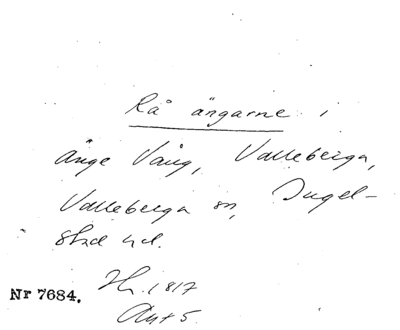 Rå ängarne i
Änge Vång, Valleberga,
Valleberga sn, Ingel-
stad hd.
Nr 7684.
1817